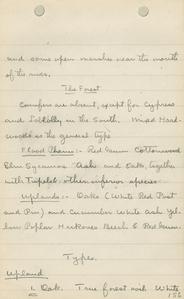 and some open marshes near the mouth
of the rivers.
The Forest
Conifers are absent, except for Cypress
and Loblolly in the South. Mixed Hard-
woods is the general type.
Flood Plain:- Red Gum Cottonwood
Elm Sycamore Ash and Oak, together
with Tupelo + other inferior species.
Uplands:- Oaks (White Red Post
and Pin) and Cucumber White Ash Yel-
low Poplar Hickories Beech & Red Gum.
Types.
Upland
1. Oak. True forest with White